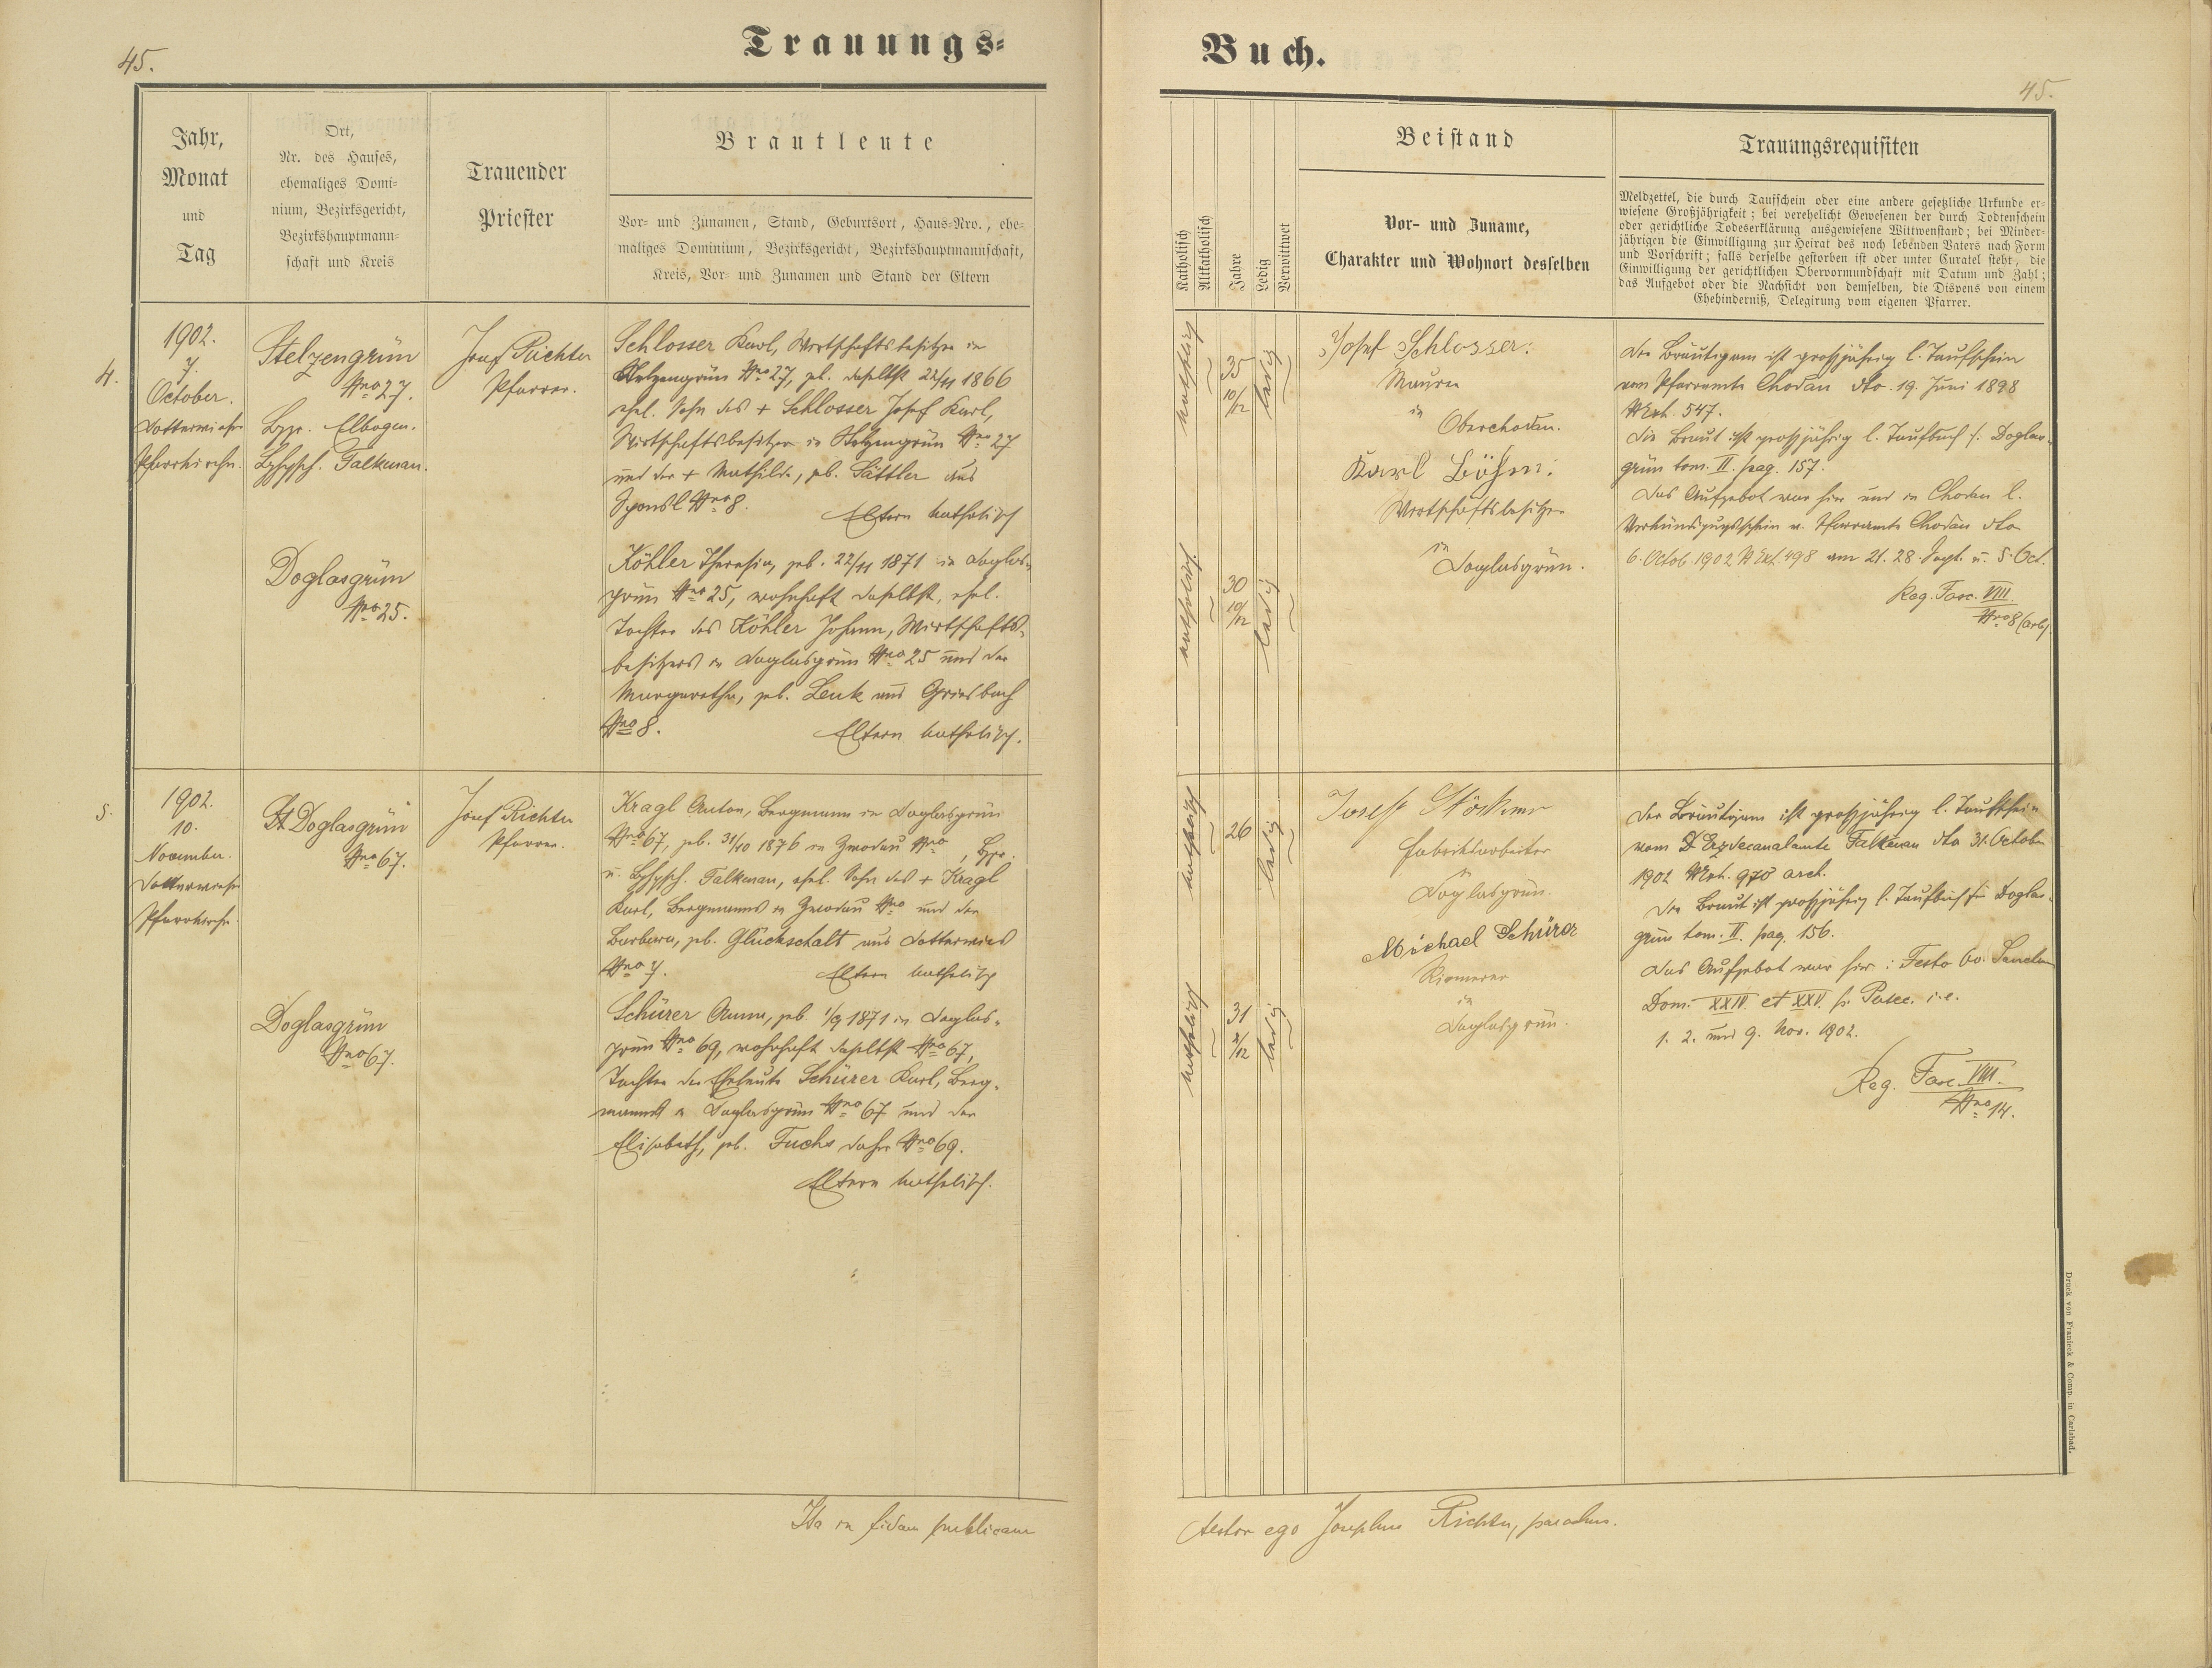 45.
Trauungs-
Jahr,
Monat
und
Tag
Ort,
Nr. des Hauses,
ehemaliges Domi-
nium, Bezirksgericht,
Bezirkshauptmann-
schaft und Kreis
Trauender
Priester
Brautleute
Vor- und Zunamen, Stand, Geburtsort, Haus-Nro., ehe-
maliges Dominium, Bezirksgericht, Bezirkshauptmannschaft,
Kreis, Vor- und Zunamen und Stand der Eltern
4.
1902.
7.
October.
Dotterwieser
Pfarrkirche.
Stelzengrün
Nro 27.
Bzgr. Elbogen.
Bzhpsch. Falkenau.
Doglasgrün
Nro 25.
Josef Richter
Pfarrer.
Schlosser Karl, Wirtschaftsbesitzer in
Stelzengrün Nro 27, geb. daselbst 22/11 1866
ehel. Sohn des + Schlosser Josef Karl,
Wirtschaftsbesitzer in Stelzengrün Nro 27
und der + Mathilde, geb. Sättler aus
Nro 8.
Eltern katholisch
Köhler Theresia, geb. 22/11 1871 in Doglas-
grün Nro 25, wohnhaft daselbst, ehel.
Tochter des Köhler Johann, Wirtschafts-
besitzers in Doglasgrün Nro 25 und der
Margaretha, geb. Lenk aus Griesbach
Nro 8.
Eltern katholisch.
5.
1902.
10.
November.
Dotterwieser
Pfarrkirche.
Doglasgrün
Nro 67.
Doglasgrün
Nro 67.
Josef Richter
Pfarrer.
Kragl Anton, Bergmann in Doglasgrün
Nro 67, geb. 31/10 1876 in Zwodau Nro , Bzgr.
u. Bzhpsch. Falkenau, ehel. Sohn des + Kragl
Karl, Bergmanns in Zwodau Nro und der
Barbara, geb. Glückschalt aus Dotterwies
Nro 7.
Eltern katholisch
Schürer Anna, geb. 1/9 1871 in Doglas-
grün Nro 69, wohnhaft daselbst Nro 67,
Tochter der Eheleute Schürer Karl, Berg-
manns in Doglasgrün Nro 67 und der
Elisabeth, geb. Fuchs daher Nro 69.
Eltern katholisch.
Ita in fidem publicam
Buch.
45.
Katholisch
Altkatholisch
Jahre
Ledig
Verwittwet
Beistand
Vor- und Zuname,
Charakter und Wohnort desselben
Trauungsrequisiten
Meldzettel, die durch Taufschein oder eine andere gesetzliche Urkunde er-
wiesene Großjährigkeit; bei verehelicht Gewesenen der durch Todtenschein
oder gerichtliche Todeserklärung ausgewiesene Wittwenstand; bei Minder-
jährigen die Einwilligung zur Heirat des noch lebenden Vaters nach Form
und Vorschrift; falls derselbe gestorben ist oder unter Curatel steht, die
Einwilligung der gerichtlichen Obervormundschaft mit Datum und Zahl;
das Aufgebot oder die Nachsicht von demselben, die Dispens von einem
Ehehinderniß, Delegirung vom eigenen Pfarrer.
katholisch
35
10/12
ledig
katholisch
30
10/12
ledig
Josef Schlosser:
Maurer
in
Oberchodau.
Karl Böhm:
Wirtschaftsbesitzer
in
Doglasgrün.
Der Bräutigam ist großjährig l. Taufschein
vom Pfarramte Chodau dto. 19. Juni 1898
NExh. 547.
Die Braut ist großjährig l. Taufbuch f. Doglas-
grün tom. II. pag. 157.
Das Aufgebot war hier und in Chodau l.
Verkündigungsschein v. Pfarramte Chodau dto
6. Octob. 1902 NExh. 498 am 21. 28. Sept. u. 5. Oct.
Reg. Fasc. VIII.
Nro 8
katholisch
26
ledig
katholisch
31
2/12
ledig
Josef Stöckner
Fabriksarbeiter
in
Doglasgrün.
Michael Schürer
in
Doglasgrün.
Der Bräutigam ist großjährig l. Taufschein
vom Erzdecanalamte Falkenau dto 31. October
1902 NExh. 970 arch.
Die Braut ist großjährig l. Taufbuch für Doglas-
grün tom. II. pag. 156.
Das Aufgebot war hier: Festo Oo. Sanctor.
Dom. XXIV. et XXV. p. Pntec. i.e.
1. 2. und 9. Nov. 1902.
Reg. Fasc. VIII.
Nro 14.
testor ego Josephus Richter, parochus.
Druck von Franieck & Comp. in Carlsbad.